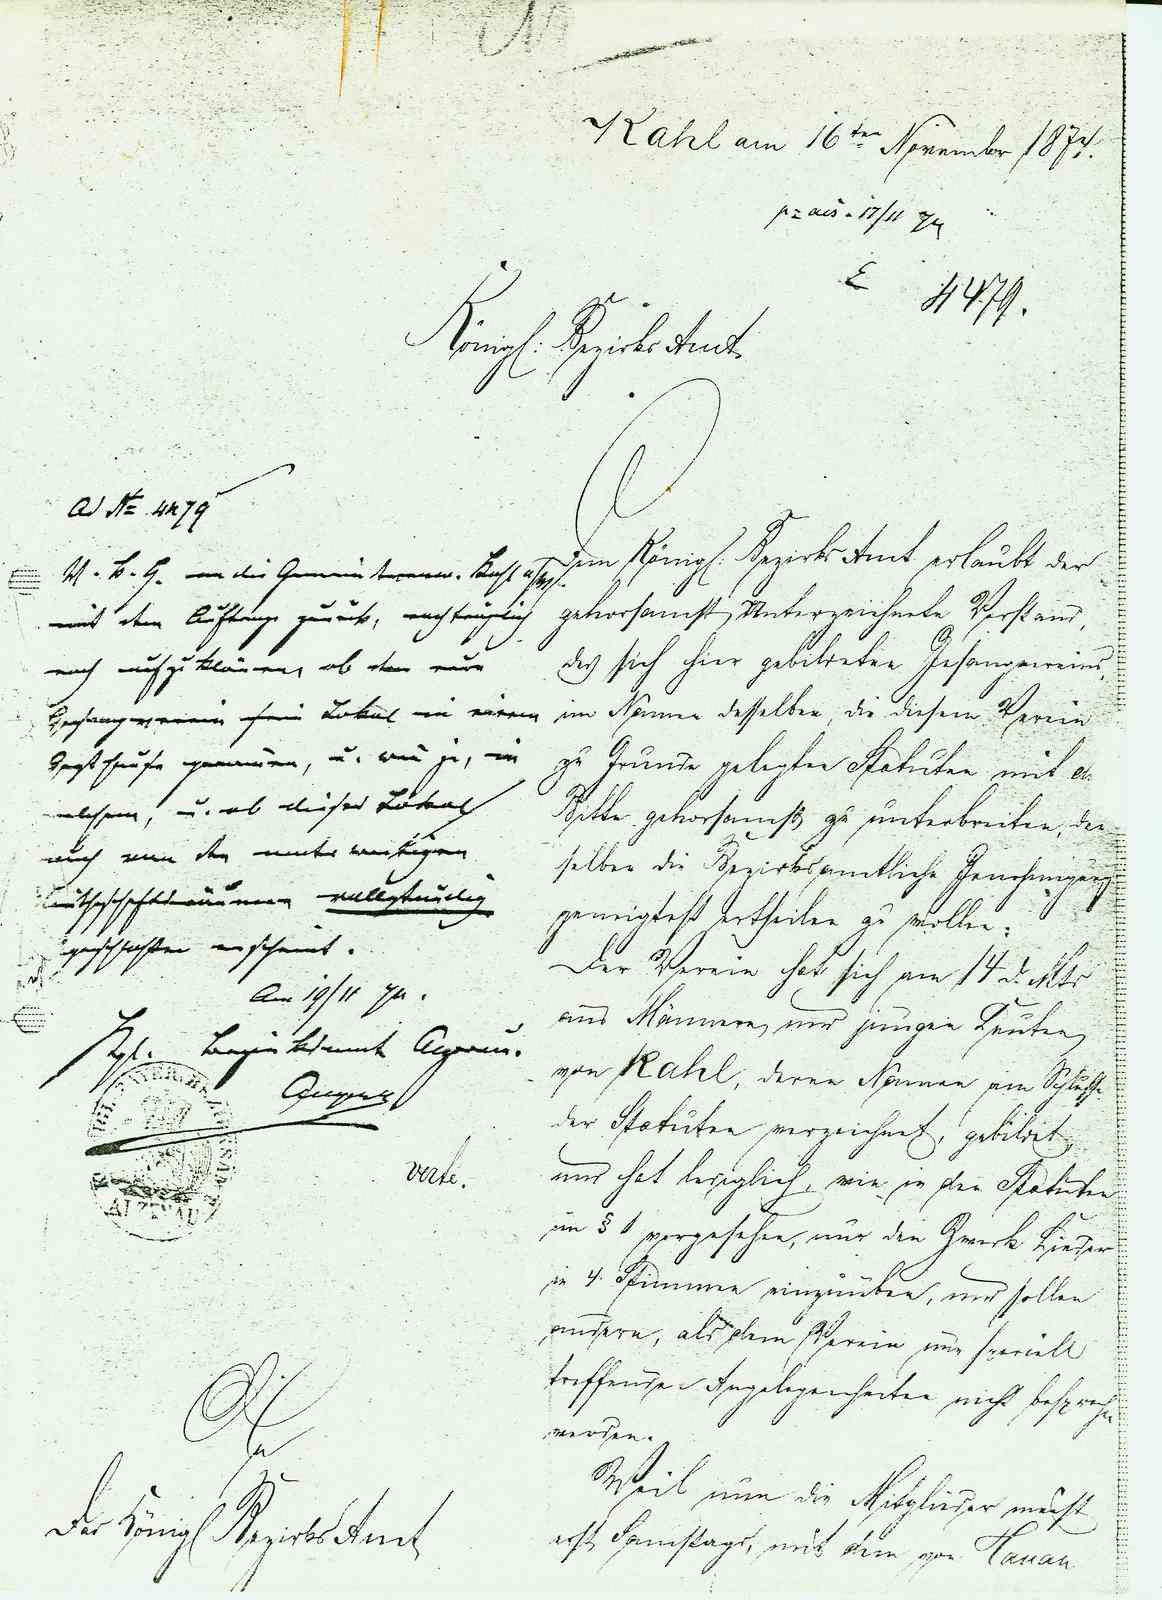 Kahl am 16ten November 1874.
17/11 74
E 4479.
Königl: Bezirks Amt
Dem Königl. Bezirks Amt erlaubt der
gehorsamst Unterzeichnete Vorstand,
des sich hier gebildeten Gesangvereins,
im Namen desselben, die diesem Verein
zu Grunde gelegten Statuten mit der
Bitte gehorsamst zu unterbreiten, den
selben die Bezirksamtliche Genehmigung
geneigtest ertheilen zu wollen.
Der Verein hat sich am 14 d. Mts
aus Männern und jungen Leuten
von Kahl, deren Namen am Schluße
der Statuten verzeichnet, gebildet,
und hat lediglich, wie in den Statuten
im § 1 vorgesehen, nur den Zweck Lieder
in 4. Stimmen einzuüben, und sollen
andere, als dem Verein nur speciell
treffenden Angelegenheiten nicht besprochen
werden.
Weil nun die Mitglieder meist
erst Samstags, mit dem von Hanau
Ad № 4479
U. b. G. an die Gemeindeverw. Kahl a/M.
mit dem Auftrage zurück, nachträglich
noch aufzuklären, ob der neue
Gesangverein sein Lokal in einem
Gasthause genommen, u. wenn ja, in
welchem, u. ob dieses Lokal
auch von den
Wirthschaftsräumen vollständig
geschlossen erscheint.
Am 19/11 74.
Kgl. Bezirksamt Alzenau.
verte.
KGL. BAYER. BEZIRKSAMT
ALZENAU
An
Das Königl Bezirks Amt